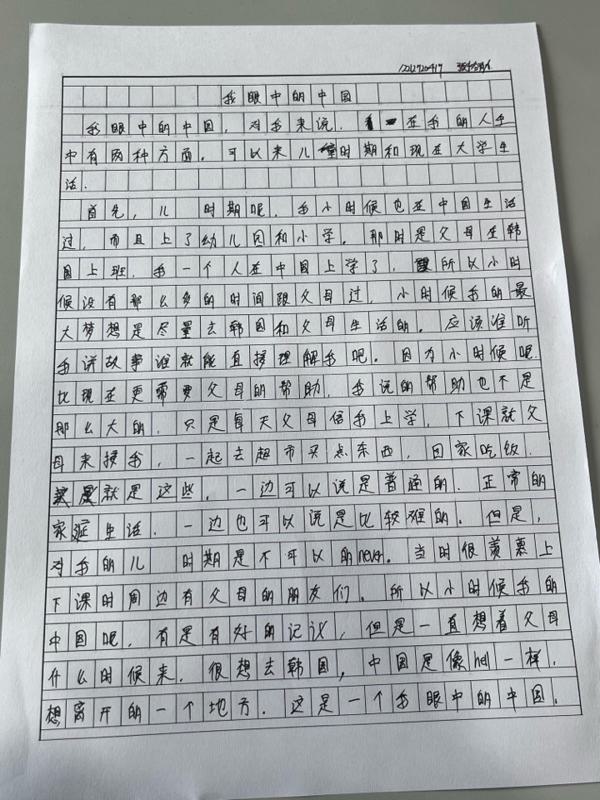 我眼中的中国
我眼中的中国,对我来说.在我的人生
中有两种方面.可以来儿童时期和现在大学生
活.
首先,儿 时期呢.我小时候也在中国生活
过,而且上了幼儿园和小学.那时是父母在韩
国上班.我一个人在中国上学了,所以小时
候没有那么多的时间跟父母过,小时候我的最
大梦想是尽量去韩国和父母生活的.应该谁听
我讲故事谁就能直接理解我吧.因为小时候呢
比现在更需要父母的帮助.我说的帮助也不是
那么大的.只是每天父母陪我上学,下课就父
母来接我,一起去超市买点东西,回家吃饭.
就是这些.一边可以说是普通的.正常的
家庭生活.一边也可以说是比较难的.但是,
对我的儿 时期是不可以的never.当时很羡慕上
下课时周边有父母的朋友们.所以小时候我的
中国呢.有是有好的记议,但是一直想着父母
什么时候来.很想去韩国,中国是像hell一样.
想离开的一个地方.这是一个我眼中的中国.